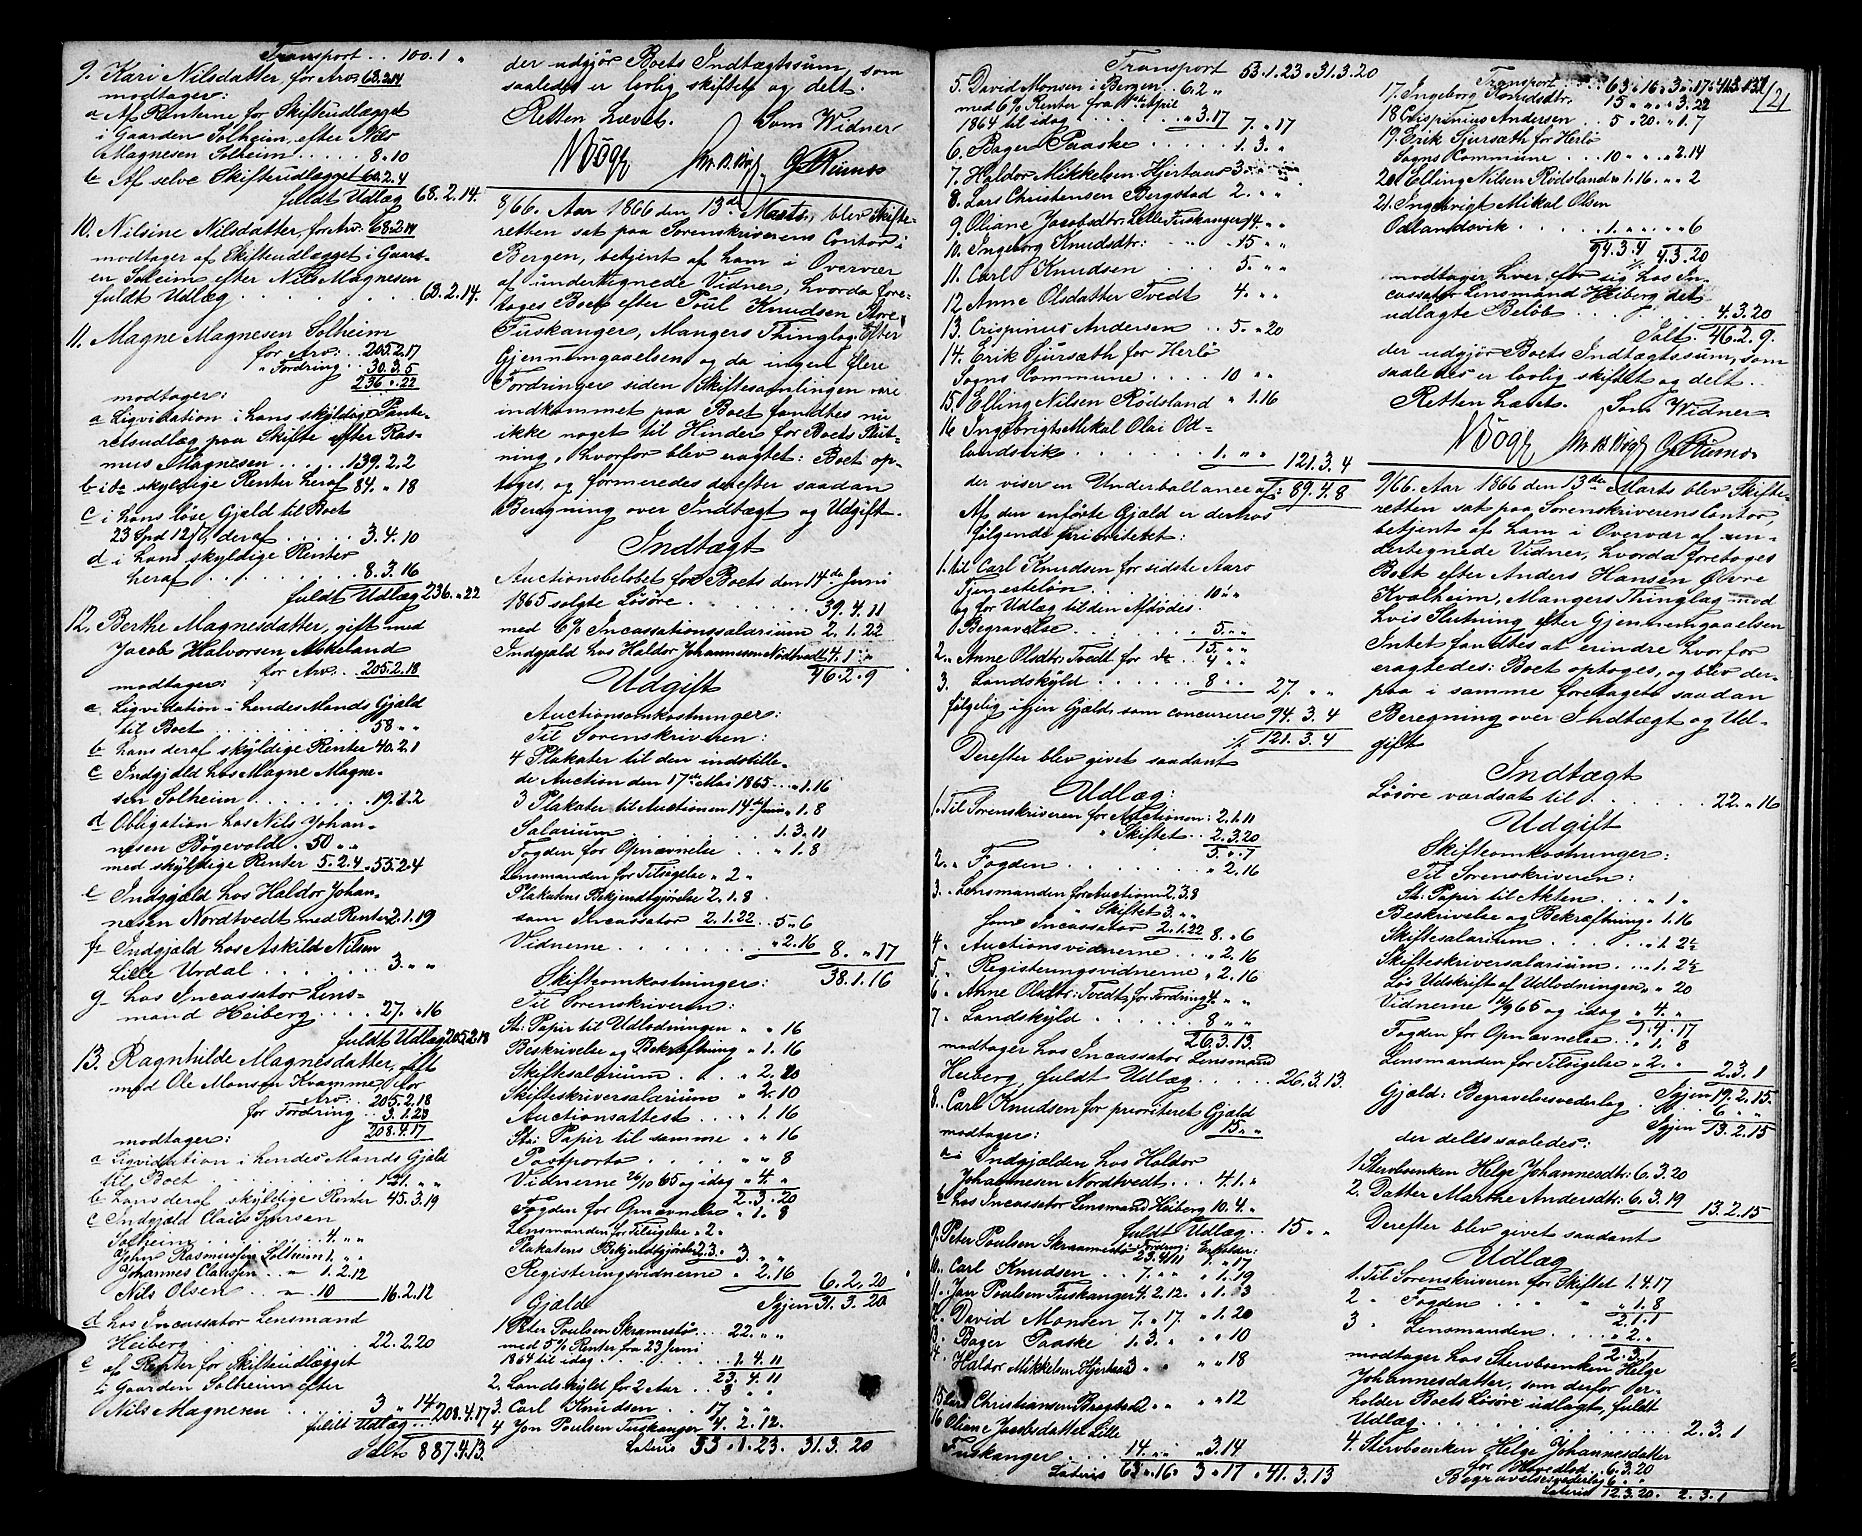 Transport .. 100.1 „
9. Kari Nilsdatter, for Arv 63.2.14
modtager:
a Af Renterne for Skifteudlægget
i Gaarden Solheim, efter Nils
Magnesen Solheim ..... 8.10
b Af selve Skifteudlægget 60.2.4
fuldt Udlæg 68.2.14.
10. Nilsine Nilsdatter, for Arv: 68.2.14
modtager af Skifteudlægget i Gaard-
en Solheim efter Nils Magnesen
fuldt Udlæg ........ 63.2.14.
11. Magne Magnesen Solheim
for Arv: .. 205.2.17
„ Fordring .. 30.3.5
236.„.22
modtager:
a Liqvidation i hans skyldige Pante-
retsudlæg paa Skifte efter Ras-
mus Magnesen ...... 139.2.2
b i do skyldige Renter heraf 84.„.18
c i hans løse Gjæld til Boet
23 Spd 12 ß, deraf ..... 3.4.10
d i hans skyldige Renter
heraf ......... 8.3.16
fuldt Udlæg 236.„.22
12. Berthe Magnesdatter, gift med
Jacob Halvorsen Askeland
for Arv: .. 205.2.18
modtager:
a. Liqvidation i hendes Mands Gjæld
til Boet ........ 58.„.„
b hans deraf skyldige Renter 40.2.1
c Indgjæld hos Magne Magne-
sen Solheim ....... 19.1.2
d Obligation hos Nils Johan-
nesen Bøgevold . 50.„.„
med skyldige Renter 5.2.4 „ 55.2.4
e Indgjæld hos Haldor Johan-
nesen Nordtvedt med Renter 2.1.19
f Indgjæld hos Askild Nilsen
Lille Urdal ....... 3.„.„
g hos Incassator Lens-
mand Heiberg .... 27.„.16
fuldt Udlæg 205.2.18
13. Ragnhilde Magnesdatter, gift
med Ole Monsen Kvamme, for
Arv .. 205.2.18
for Fordring .. 3.1.23
208.4.17
modtager:
a Liqvidation i hendes Mands Gjæld
til Boet ......... 121.„.„
b hans deraf skyldige Renter 45.3.19
c Indgjæld Claus Sjursen
Solheim ....... 4.„.„
John Rasmussen Solheim 1.„.„
Johannes Clausen .. „ 1.2.12
Nils Olsen .. „ 10 ___ 16.2.12
d hos Incassator Lensmand
Heiberg ........ 22.2.20
e af Renter for Skifteudlægget
i Gaarden Solheim efter
Nils Magnesen ..... 3.„.14
fuldt Udlæg ... 208.4.17
Salt 887.4.13.
der udgjør Boets Indtægtssum, som
saaledes er lovlig skiftet og delt.
Retten hævet. Som Widner
8/66. Aar 1866 den 13de Marts, blev Skifte-
retten sat paa Sorenskriverens Contor i
Bergen, betjent af ham i Overvær
af undertegnede Vidner, hvorda fore-
toges Boet efter Poul Knudsen Store
Fuskanger, Mangers Thinglag. Efter
Gjennemgaaelsen og da ingen flere
Fordringer siden Skiftesamlingen vare
indkommet paa Boet fandtes nu
ikke noget til Hinder for Boets Slut-
ning, hvorfor blev eragtet: Boet op-
tages, og formeredes derefter saadan
Beregning over Indtægt og Udgift.
Indtægt
Auctionsbeløbet for Boets den 14de Juni
1865 solgte Løsøre ....... 39.4.11
med 6% Incassationssalarium 2.1.22
Indgjæld hos Haldor Johannesen Nødtvedt 4.1.„
46.2.9
Udgift
Auctionsomkostninger:
Til Sorenskriveren:
4 Plakater til den indstille-
de Auction den 17de Mai 1865 .. „.1.16
3 Plakater til Auctionen 14de Juni „.1.8
Salarium ........ 1.3.11
Fogden for Opnævnelse .. „.1.8
Lensmanden for Tilsigelse „.2.„
Plakatens Bekjendtgjørelse 2.1.8
som Incassator 2.1.22 .. 5.„.6
Vidnerne ........ „.2.16 8.„.17
38.1.16
Skifteomkostninger:
Til Sorenskriveren:
St: Papir til Udlodningen „.„.16
Beskrivelse og Bekræftning „.1.16
Skiftesalarium .... „.2.20
Skifteskriversalarium „.2.10
Auctionsattest ... „.1.16
St: Papir til samme „.„.16
Postporto ..... „.„.8
Vidnerne 26/10 65 og idag „.4.„
2.3.20
Fogden for Opnævnelse „.1.8
Lensmanden for Tilsigelse „.2.„
Plakatens Bekjendtgjørelse 2.3.„ 3.„.„
Registeringsvidnerne „.2.16 6.2.20
Gjæld Igjen 31.3.20
1 Peter Poulsen Skramestø ... 22.„.„
med 5% Renter fra 23 Juni
1864 til idag ....... 1.4.11
23.4.11
2. Landskyld for 2 Aar .. 8.„.„
3. Carl Knudsen .. 17.„.„
4 Jon Poulsen Fuskanger 4.2.12.
Lateris 53.„.1.23. 31.3.20
Transport 53.1.23.„31.3.20
5. David Monsen i Bergen .. 6.2.„
med 6% Renter fra 11te April
1864 til idag ..... „.3.17 7.„.17
6. Bager Paaske ........ 1.3.„
7. Haldor Mikkelsen Hjertaas 3.„.„
8. Lars Christensen Bergstad 2.„.„
9. Oliane Jacobsdtr: Lille Fuskanger 14.„.„
10. Ingeborg Knudsdtr: „ „ 15.„.„
11. Carl Knudsen ....... 5.„.„
12. Anne Olsdatter Tvedt .. 4.„.„
13. Crispinus Andersen ... 5.„.20
14. Erik Sjursæth for Herlø
Sogns Commune .... 10.„.„
15. Elling Nilsen Rødsland „.1.16
16. Ingebrigt Mikal Olai Od-
landsvik ........ 1.„.„ 121.3.4
der viser en Underballance af: 89.4.8
Af den anførte Gjæld er derhos
følgende prioriteret:
1. til Carl Knudsen for sidste Aars
Tjenesteløn ...... 10.„.„
og for Udlæg til den Afdødes
Begravelse ...... 5.„.„
15.„.„
2. „ Anne Olsdtr: Tvedt for do .. 4.„.„
3. „ Landskyld .... 8.„.„ 27.„.„
følgelig igjen Gjæld som concurerer 94.3.4
121.3.4
Derefter blev givet saadant
Udlæg:
1. Til Sorenskriveren for Auctionen: 2.1.11
„ Skiftet .. 2.3.20
5.„.7
2. „ Fogden ........ „.2.16
3. „ Lensmanden for Auctionen 2.3.8
„ Skiftet 3.„.„
som Incassator 2.1.22 8.„.6
4. „ Auctionsvidnerne ... „.2.16
5. „ Registeringsvidnerne „.2.16
6 „ Anne Olsdtr: Tvedts for Fordring 4.„.„
7 „ Landskyld ...... 8.„.„
26.3.13
modtager hos Incassator Lensmand
Heiberg, fuldt Udlæg ..... 26.3.13.
8. Carl Knudsen for prioriteret Gjæld
15.„.„
modtager:
a. Indgjælden hos Haldor
Johannesen Nordtvedt .. 4.1.„
b hos Incassator Lensmand Heiberg 10.4.„
fuldt Udlæg ... 15.„.„
Fordring: Erholder:
9. Peter Poulsen Skramestø 23.4.11 1.„.17
10. „ Carl Knudsen ... 7.„.„ „.1.19
11. „ Jon Poulsen Fuskanger 4.2.12. „.1.3
12. David Monsen 7.„.17. „.1.20
13. Bager Paaske 1.3.„ „.„.10
14. Haldor Mikkelsen Hjertaas 3.„.„ „.„.18
15. Lars Christiansen Bragstad 2.„.„ „.„.12
16. Oliane Jacobsdatter Lille
Fuskanger .... 14.„.„ „.3.14
Lateris 63.„.16. 3.„.17. „ 41.3.13
Transport ... 63.„.16.„.3.„.17.41.3.13
121
17. Ingeborg Knudsdtr. 15.„.„ „.3.22
18 Crispinius Andersen .. 5.„.20. „.1.7
19. Erik Sjursæth for Herlø
Sogns Commune ... 10.„.„ „.2.14
20. Elling Nilsen Rødsland „.1.16 „.„.2
21. Ingebrigt Mikal Olsen
Odlandsvik ...... 1.„.„ „.„.6
94.3.4 4.3.20
modtager hver for sig hos In-
cassator Lensmand Heiberg det
udlagte Beløb ........ 4.3.20
Salt: 46.2.9.
der udgjør Boets Indtægtssum, som
saaledes er lovlig skiftet og delt.
Retten hævet. Som Widner
9/66. Aar 1866 den 13de Marts blev Skifte-
retten sat paa Sorenskriverens Contor,
betjent af ham i Overvær af un-
dertegnede Vidner, hvorda foretoges
Boet efter Anders Hansen Øvre
Kvalheim, Mangers Thinglag mod
hvis Slutning efter Gjennemgaaelsen
Intet fandtes at erindre hvorfor
eragtedes: Boet optoges, og blev der-
paa i samme foretaget saadan
Beregning over Indtægt og Ud-
gift
Indtægt
Løsøre værdsat til ....... 22.„.16
Udgift
Skifteomkostninger:
Til Sorenskriveren:
St: Papir til Akten .. „.1.„
Beskrivelse og Bekræftning „.1.16
Skiftesalarium .... „.1.2½
Skifteskriversalarium .. „.1.2½
Løs Udskrift af Udlodningen „.„.20
Vidnerne 14/9 65 og idag „.4.„
1.4.17
Fogden for Opnævnelse .. „.1.8
Lensmanden for Tilsigelse „.2.„ 2.3.1
Igjen 19.2.15.
Gjæld: Begravelsesvederlag . 6.„.„
Igjen 13.2.15
der deltes saaledes:
1. Stervboenken Helge Johannesdtr: 6.3.20
2. Datter Marthe Andersdtr: 6.3.19 13.2.15
Derefter blev givet saadant
Udlæg
1. Til Sorenskriveren for Skiftet 1.4.17
2 „ Fogden .. „ „ „.1.8
2.1.1
3 „ Lensmanden .... „.2.„
2.3.1
modtager hos Stervboenken Helge
Johannesdatter, som derfor be-
holder Boets Løsøre udlagt, fuldt
Udlæg ............ 2.3.1
4. Stervboenken Helge Johannesdatter
for Hovedlod .. 6.3.20
Begravelsesvederlag 6.„.„
Lateris 12.3.20. 2.3.1